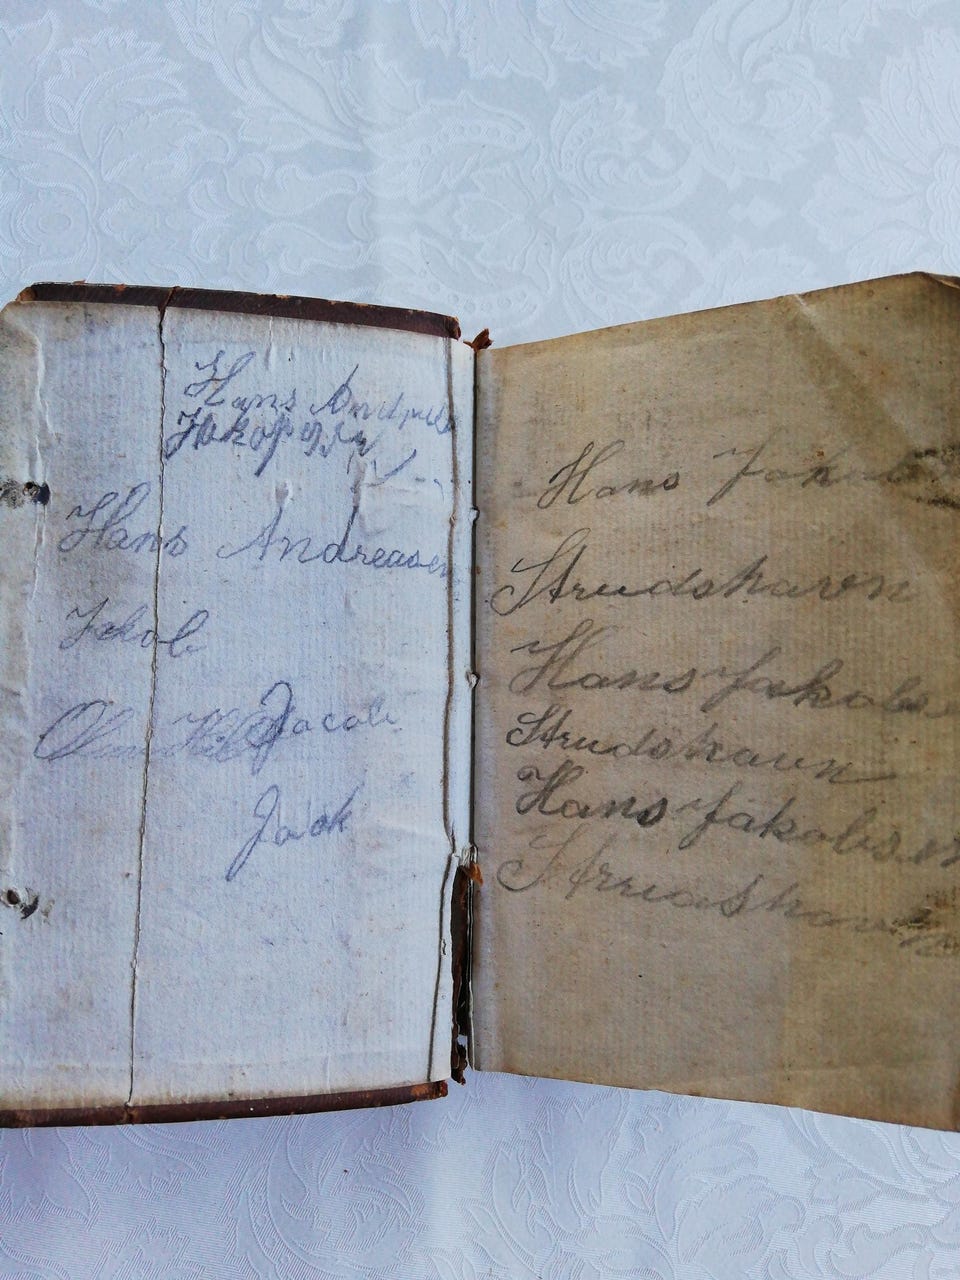 Hans Andreas
Hans Andreasen
Jakob
Jacob
Jack
Hans Jakob
Strudshavn
Hans Jakobse
Strudshavn
Hans Jakobsen
Strudshavn